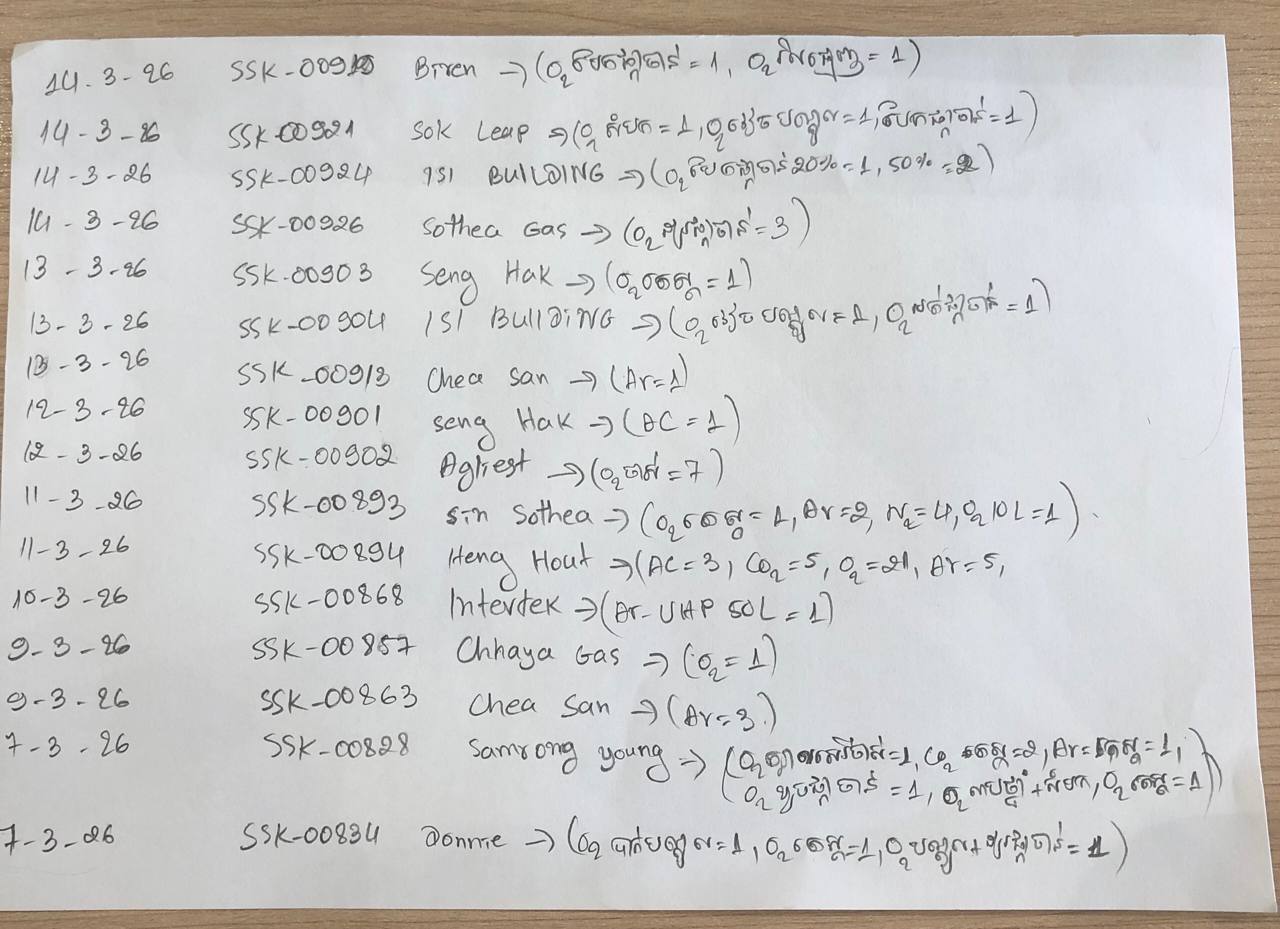 14-3-26 SSK-00910 Biren → (O₂ បែកផ្កាចាន់ = 1, O₂ = 1)
14-3-26 SSK-00921 Sok Leap → (O₂ សំបក = 1, O₂ វៀចបណ្ដូល = 1, បែកផ្កាចាន់ = 1)
14-3-26 SSK-00924 ISI BUILDING → (O₂ បែកផ្កាចាន់ 20% = 1, 50% = 2)
14-3-26 SSK-00926 Sothea Gas → (O₂ ផ្កាចាន់ = 3)
13-3-26 SSK-00903 Seng Hak → (O₂ តេស្ត = 1)
13-3-26 SSK-00904 ISI BUILDING → (O₂ វៀចបណ្ដូល = 1, O₂ ផ្កាចាន់ = 1)
13-3-26 SSK-00913 Chea San → (Ar = 1)
12-3-26 SSK-00901 Seng Hak → (AC = 1)
12-3-26 SSK-00902 Agliest → (O₂ ចាស់ = 7)
11-3-26 SSK-00893 Sin Sothea → (O₂ តេស្ត = 1, Ar = 2, N₂ = 4, O₂ 10L = 1).
11-3-26 SSK-00894 Heng Hout → (AC = 3, CO₂ = 5, O₂ = 21, Ar = 5,
10-3-26 SSK-00868 Intertek → (Ar-UHP 50L = 1)
9-3-26 SSK-00857 Chhaya Gas → (O₂ = 1)
9-3-26 SSK-00863 Chea San → (Ar = 3)
7-3-26 SSK-00828 Samrong young → (O₂ = 1, CO₂ តេស្ត = 2, Ar = តេស្ត = 1,
O₂ ផ្កាចាន់ = 1, O₂ + សំបក, O₂ តេស្ត = 1)
7-3-26 SSK-00834 Donnie → (O₂ បាក់បណ្ដូល = 1, O₂ តេស្ត = 1, O₂ បណ្ដូល + ផ្កាចាន់ = 1)